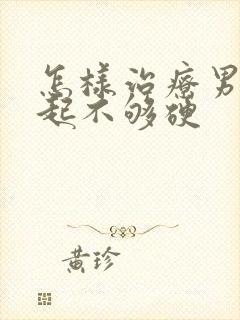 怎样治疗男
起不够硬
黄珍